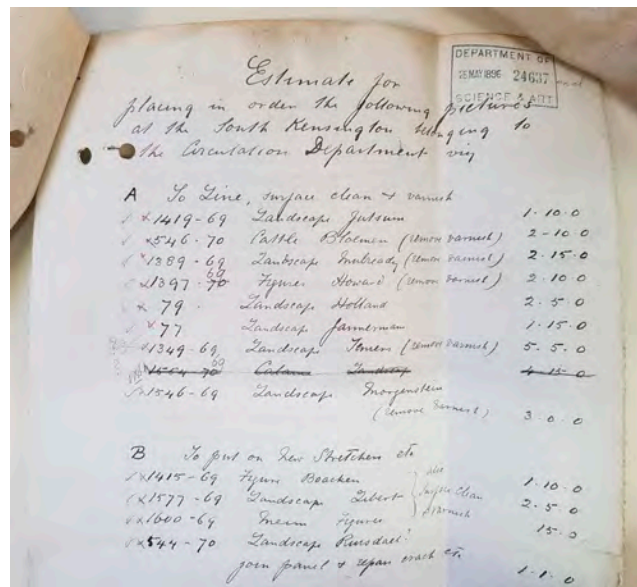 DEPARTMENT OF
28 MAY 1896 24637
SCIENCE & ART
Estimate for
placing in order the following pictures
at the South Kensington belonging to
the Circulation Department viz
A To Line, surface clean & varnish
x1419-69 Landscape Jutsum 1-10-0
x546-70 Cattle Bloemen (remove varnish) 2-10-0
x1389-69 Landscape Mulready (remove varnish) 2.15.0
x1397-70 69 Figures Howard (remove varnish) 2.10.0
x 79. Landscape Holland 2.5.0
x 77 Landscape 1.15.0
x1349-69 Landscape Teniers (remove varnish) 5.5.0
Calame Landscape 4-15-0
x1546-69 Landscape Morgenstern
(remove varnish) 3.0.0
B To put on New Stretchers etc
x1415-69 Figure 1.10.0
x1577-69 Landscape 2.5.0
also
Surface Clean
& varnish
x1600-69 Figures 15.0
x544-70 Landscape Ruisdael
join panel & repair crack etc
1-1.0